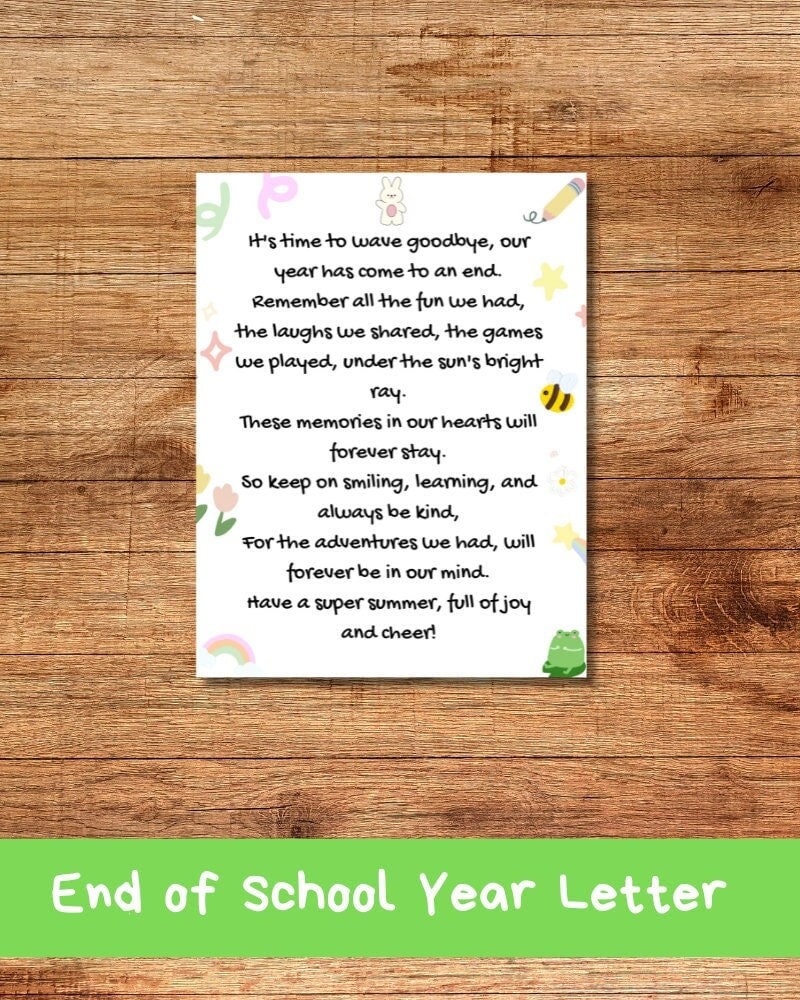 It's time to wave goodbye, our
year has come to an end.
Remember all the fun we had,
the laughs we shared, the games
we played, under the sun's bright
ray.
These memories in our hearts will
forever stay.
So keep on smiling, learning, and
always be kind,
For the adventures we had, will
forever be in our mind.
Have a super summer, full of joy
and cheer!
End of School Year Letter